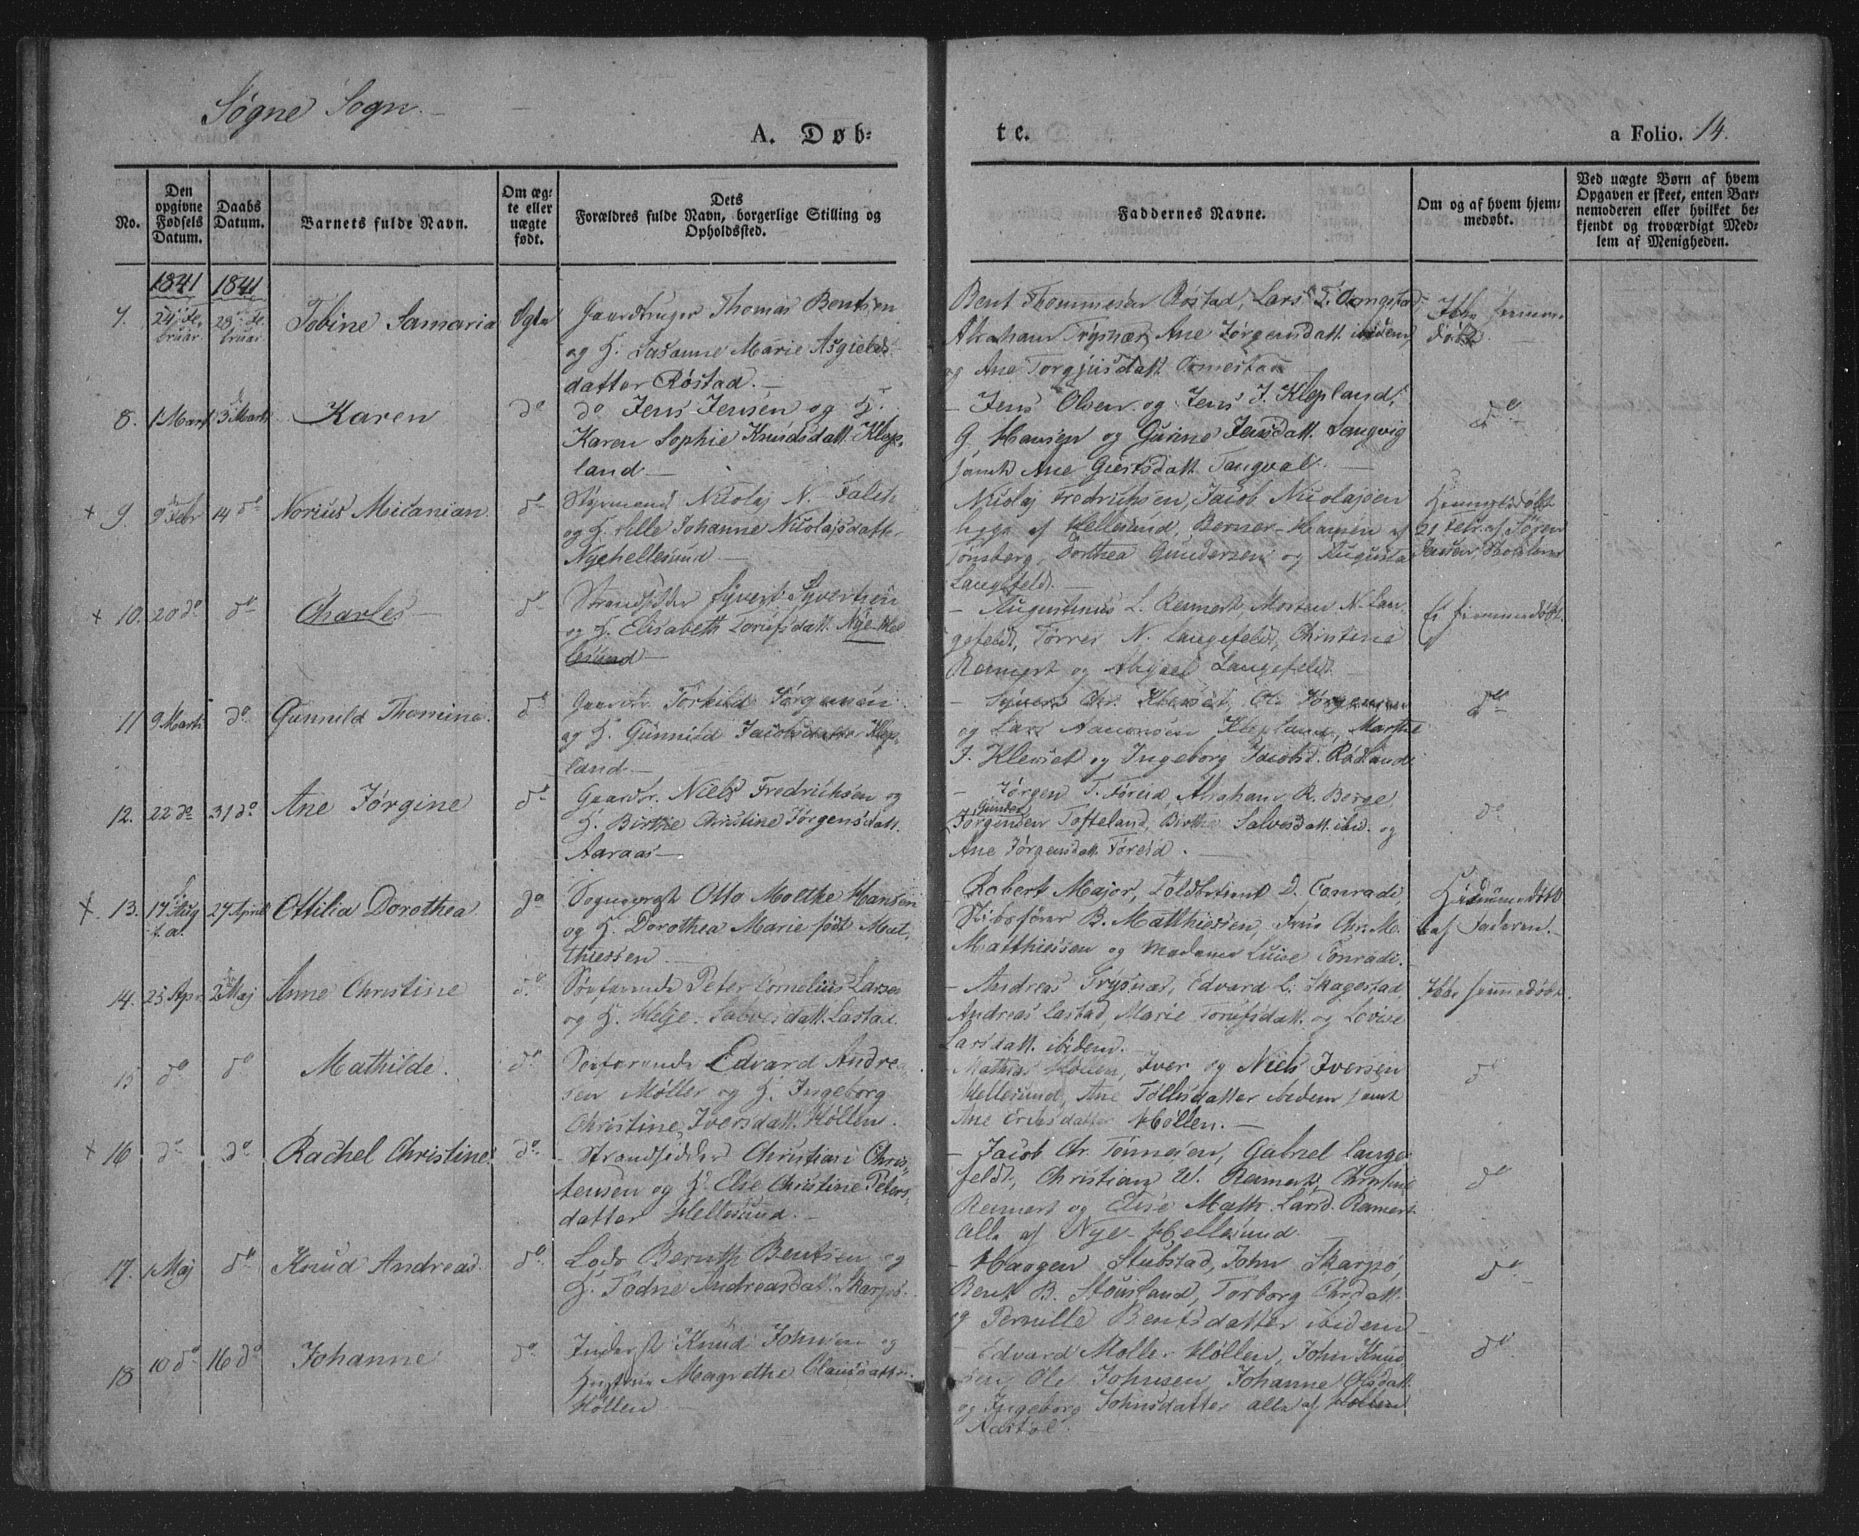 Søgne Sogn.
A. Døb-
te.
a Folio. 14.
No.
Den opgivne Fødsels Datum.
Daabs Datum.
Barnets fulde Navn.
Om ægte eller uægte født.
Dets
Forældres fulde Navn, borgerlige Stilling og
Opholdssted.
Faddernes Navne.
Om og af hvem hjemmedøbt.
Ved uægte Børn af hvem
Opgaven er skeet, enten Bar-
nemoderen eller hvilket be-
kjendt og troværdigt Med-
lem af Menigheden.
1841 1841
7.
Tobine Samaria
Ægte
Gaardbruger Thomas Bentsen
og H. Susanne Marie Asgields-
datter Røstad.
Bent Thommesen Røstad, Lars T.
Abraham Trysnæs, Ane Jørgensdatt. ibidem
og Ane Torgjusdatt.
8. 1 Mart
Karen
do
do Jens Jensen og H.
Karen Sophie Knudsdatt. Klep-
land
Jens Olsen og Jens J. Klepland,
G. Hansen og Gurine Jensdatt. Langvig
samt Ane Giertsdatt. Tangval.
do
+ 9. 9 Febr 14 do
Norius Micanian
do
Styrmand Nicolaj N. Falch
og H. Sille Johanne Nicolajsdatter
Nyehellesund
Nicolaj Fredrichsen, Jacob Nicolajsen
begge af Hellesund, Berner Hansen af
Tønsberg, Dorthea Gundersen og Augusta
Langefeldt
+ 10. 20 do do
Charles
do
Strandsidder Syvert Syvertsen
og H. Elisabeth Torufsdatt. Nye-Hel
lesund
Augustinus L. Reimert, Morten N. Lan-
gefeldt, Torres N. Langefeldt, Christine
Reimert og Abigael Langefeldt
Ei hjemmedøbt.
11 9 Marts do
Gunnild Thomine
do
Gaardbr. Torkild Jørgensen
og H. Gunnild Jacobsdatter Klep-
land
og Lars Aanonsen Klepland, Marthe
J. Kleveset og Ingeborg Jacobsd. Rødland
do
12. 22 do 31 do
Ane Jørgine
do
Gaardbr. Niels Fredrichsen og
H. Birthe Christine Jørgensdatt.
Aaraas
Jørgen T. Føreid, Abraham R. Berge,
Gunder
Jørgensen Tofteland, Birthe Salvesdatt. ibid. og
Ane Jørgensdatt. Føreid.
do
13. 27 April
Ottilia Dorothea
do
Sognepræst Otto Moltke Hansen
og H. Dorothea Marie født Mat-
thiessen
Robert Major, Toldbetjent D. Conradi,
Skibsfører B. Matthiessen, Frue Chr. M.
Matthiessen og Madame Luise Conradi.
Hjemmedøbt
af Faderen.
14. 25 Apr. 2 Maj
Anne Christine
do
Søefarende Peter Cornelius Larsen
og H. Helje Salvesdatt. Lastad.
Andreas Trysnæs, Edvard L. Skagestad,
Andreas Lastad, Marie Torufsdatt. og Lovise
Larsdatt. ibidem.
Ikke hjemmedøbt.
15 do do
Mathilde.
do
Søefarende Edvard Andrea-
sen Møller og H. Ingeborg
Christine Iversdatt. Høllen.
Mathias Høllen, Iver og Niels Iversen
Hellesund, Ane Tollisdatter ibidem samt
Ane Erichsdatter Høllen.
do
+ 16 do do
Rachel Christine
do
Strandsidder Christian Chris-
tensen og H. Else Christine Peters-
datter Hellesund.
Jacob Chr. Tønnesen, Gabriel Lange-
feldt, Christian W. Reimert, Christine
Reimert og Elise Math. Larsd. Reimert
alle af Nye-Hellesund.
do
17. 1 Maj do
Knud Andreas
do
Lods Bernth Bentsen og
H. Todne Andreasdatt. Skarpø.
Haagen Stubstad, John Skarpø,
Bent B. Stousland, Torborg Chrdatt.
og Pernille Bentsdatter ibidem
do
18 10 do 16 do
Johanne
do
Inderst Knud Johnsen og
Hustrue Magrethe Clausdatter
Høllen
Edvard Møller Høllen, John Knud-
sen, Ole Johnsen, Johanne Olsdatt.
og Ingeborg Johnsdatter alle af Høllen
do